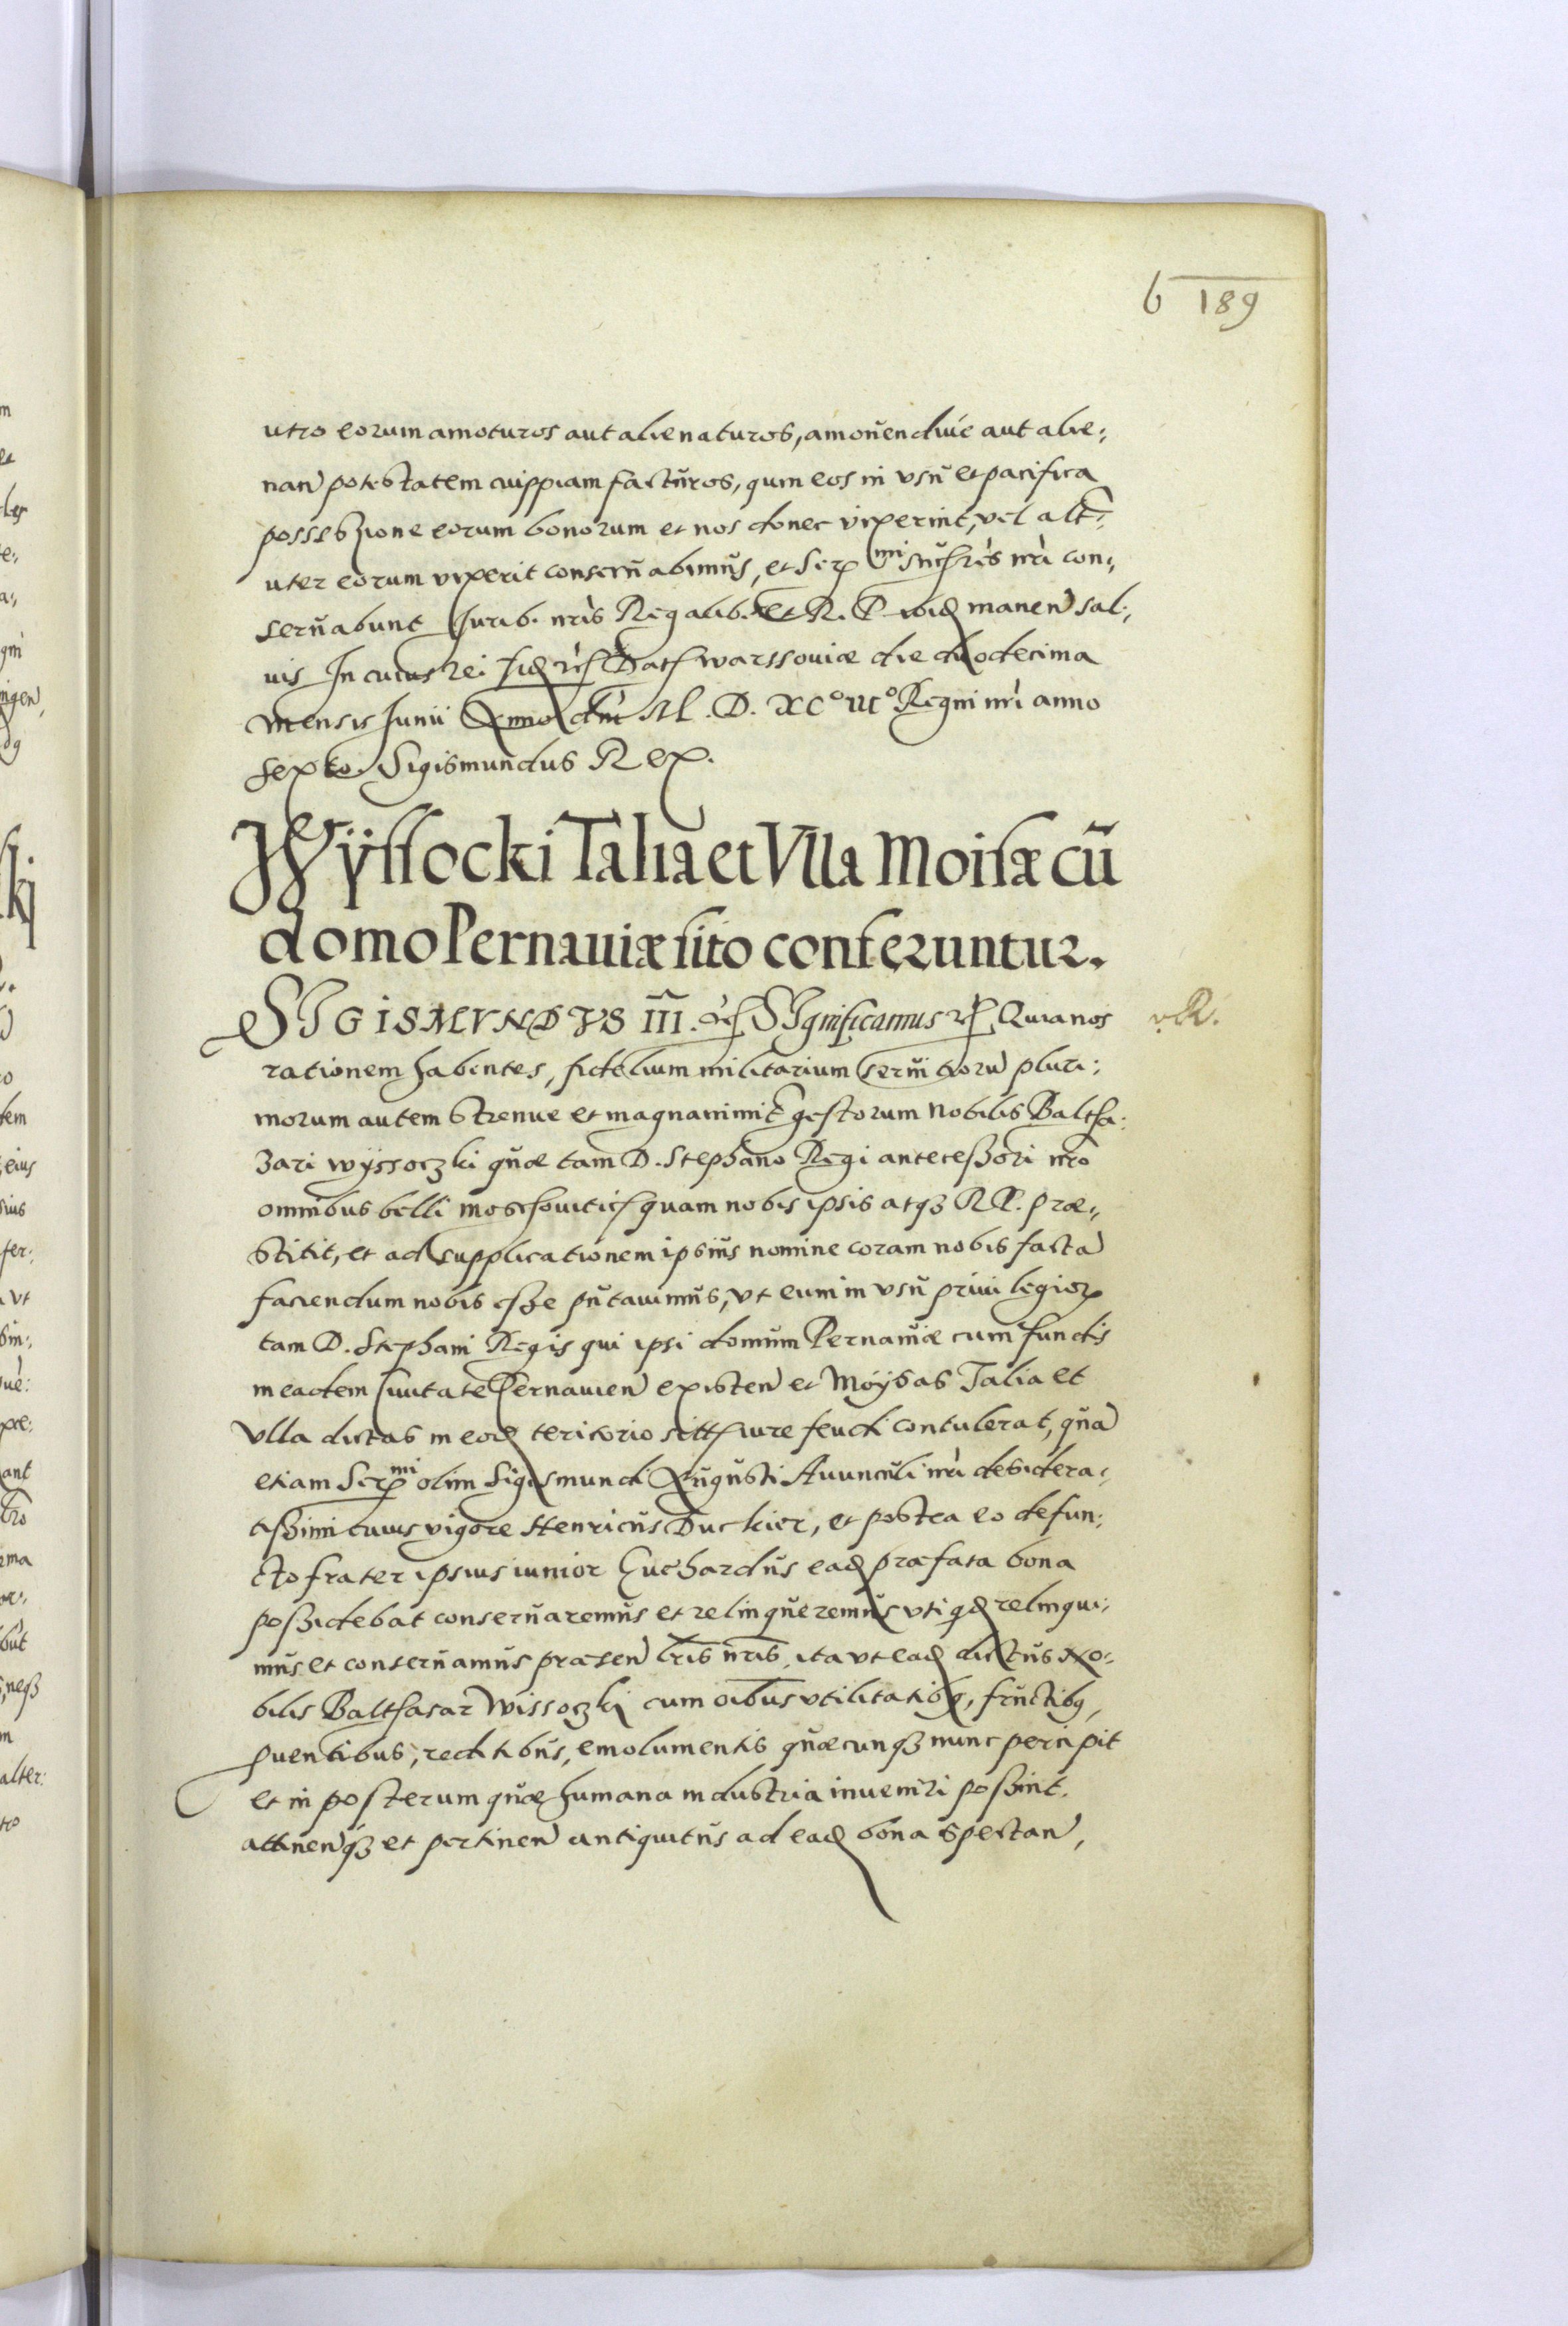 6 189
utro eorum amoturos aut alienaturos, amouendiue aut alie:
nan potestatem cuippiam facturos, quin eos in usu et pacifica
possessione eorum bonorum et nos donec vixerint, vel alt:
uter eorum vixerit conseruabimus, et Ser mi succ̃res nri con:
seruabunt Jurib. nris Regalib. et R. P. ibid manen sal:
uis In cuius rei fid etc Dat Warssouiæ die duodecima
mensis Junii Anno dni M. D. XC° III° Regni nri anno
sexto. Sigismundus Rex.
Wÿssocki Talia et Vlla Moisæ cũ
domo Pernauiæ sito conferuntur.
SIGISMVNDVS III. etc SIgnificamus etc Quia nos
rationem habentes, fidelium militarium seruitioru pluri:
morum autem strenue et magnanimit gestorum Nobilis Baltha:
zari Wÿssoczki quæ tam D. Stephano Regi antecessori nro
omnibus belli moschouitic quam nobis ipsis atq3 R P. præ:
stitit, et ad supplicationem ipsius nomine coram nobis facta
faciendum nobis esse putauimus, ut eum in usu priuilegior
tam D. Stephani Regis qui ipsi domum Pernauiæ cum fundis
in eadem ciuitate Pernauien existen et Moÿsas Talia et
Vlla dictas in eod teritorio sitt iure feudi contulerat, qua
etiam Ser mi olim Sigismundi Augusti Auunculi nri desidera:
tissimi cuius vigore Henricus Ducker, et postea eo defun:
cto frater ipsius iunior Euchardus ead præfata bona
possidebat conseruaremus et relinqueremus uti qd relinqui:
mus et conseruamus præsen lris nris, ita ut ead dictus No:
bilis Balthasar Wissoczki cum oibus utilitatibq, fructibq,
puentibus, redditibus, emolumentis quæcunq3 nunc percipit
et in posterum quæ humana industria inueniri possint.
attinenq3 et pertinen antiquitus ad ead bona spectan,